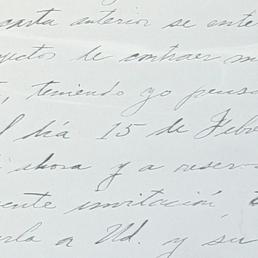 carta anterior se ente
yectos de contraer m
, teniendo yo pensa
l día 15 de Febre
ahora y a reserva
ente invitación,
rla a Ud. y su